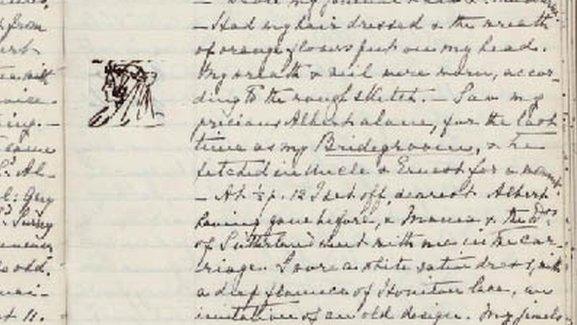 — Had my hair dressed & the wreath
of orange flowers put on my head.
My wreath & veil were worn, accor-
ding to the rough sketch. — Saw my
precious Albert alone, for the last
time as my Bridegroom, & he
fetched in Uncle & Ernest for a moment
— At ½ p. 12 I set off, dearest Albert
having gone before, & Mama & the Dss
of Sutherland went with me in the car-
riage. I wore a white satin dress, with
a deep flounce of Honiton lace, an
imitation of an old design. My jewels